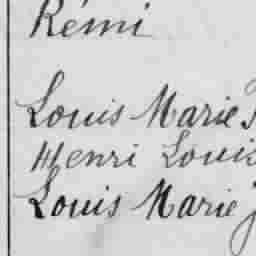 Rémi
Louis Marie
Henri Louis
Louis Marie